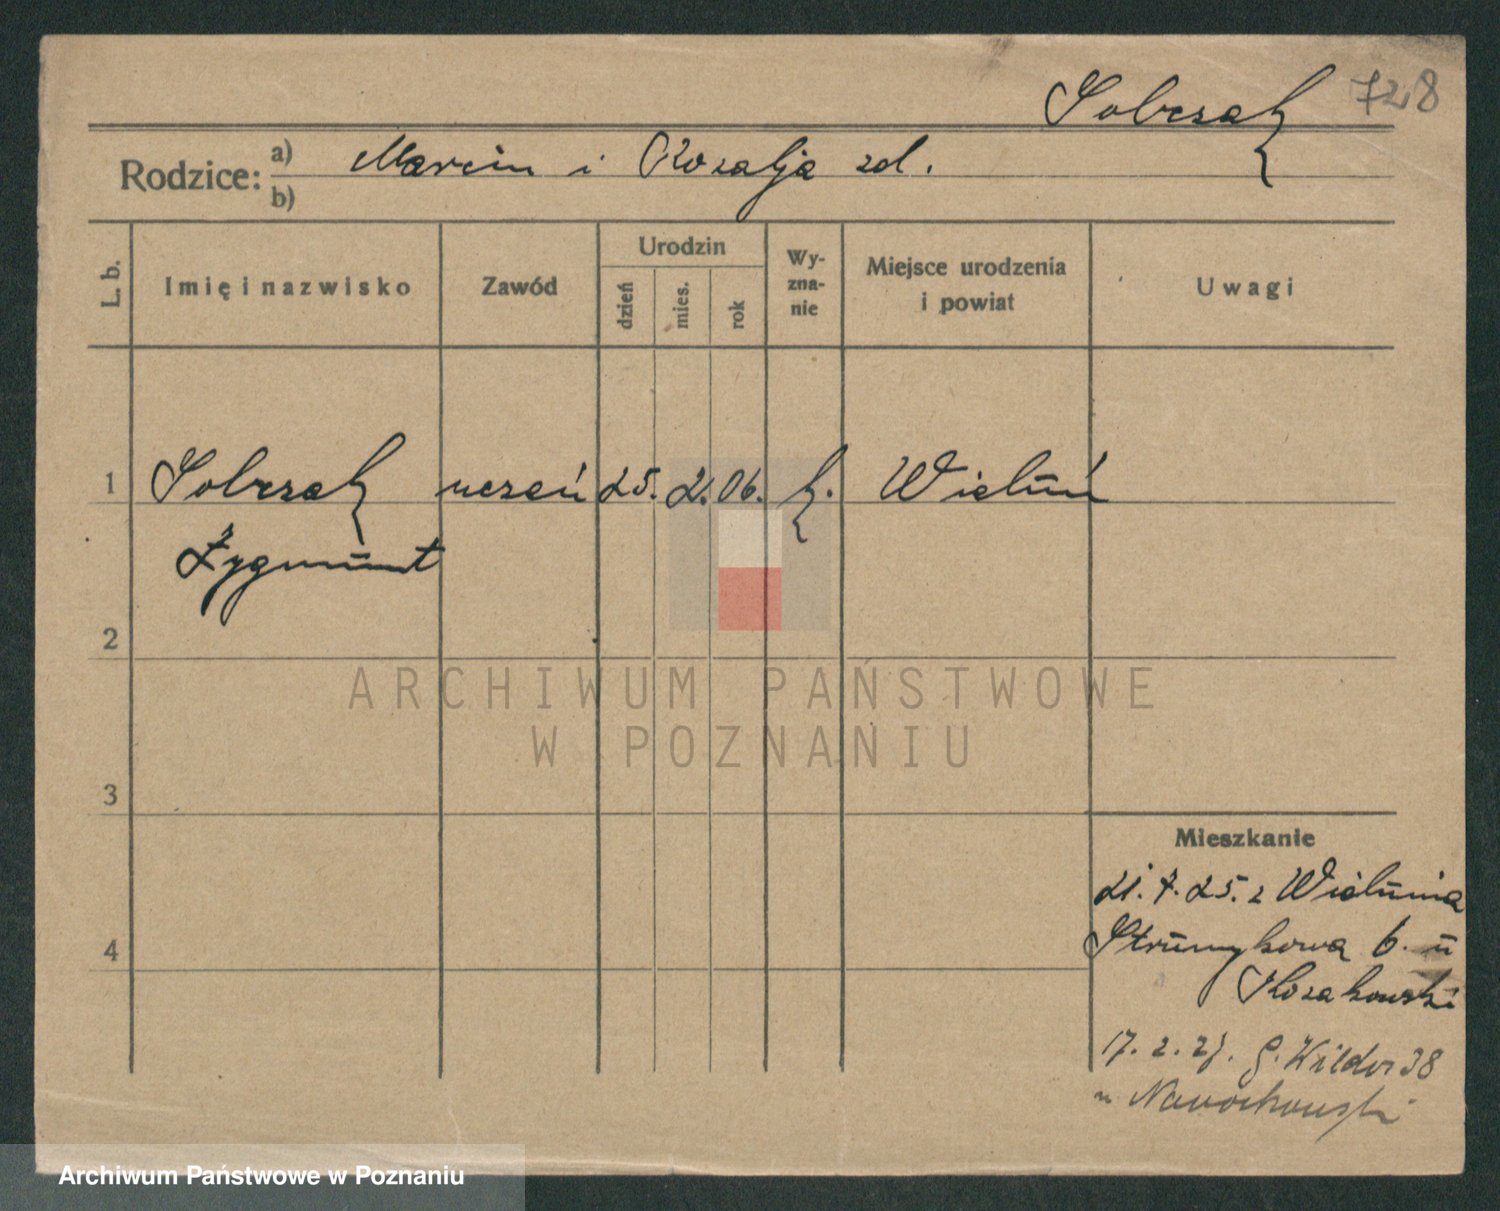 Sobczak 728
Rodzice: a) Marcin i Rozalja zd.
b)
L. b. Imię i nazwisko Zawód Urodzin dzień mies. rok Wyznanie Miejsce urodzenia i powiat Uwagi
1 Sobczak uczeń 25. 2. 06. k. Wieluń
Zygmunt
2
3
4
Mieszkanie
21. 7. 25. z Wielunia
Strumykowa 6. u
Kozakowski
17. 2. 27. G. Wilda 38
u
ARCHIWUM PAŃSTWOWE
W POZNANIU
Archiwum Państwowe w Poznaniu